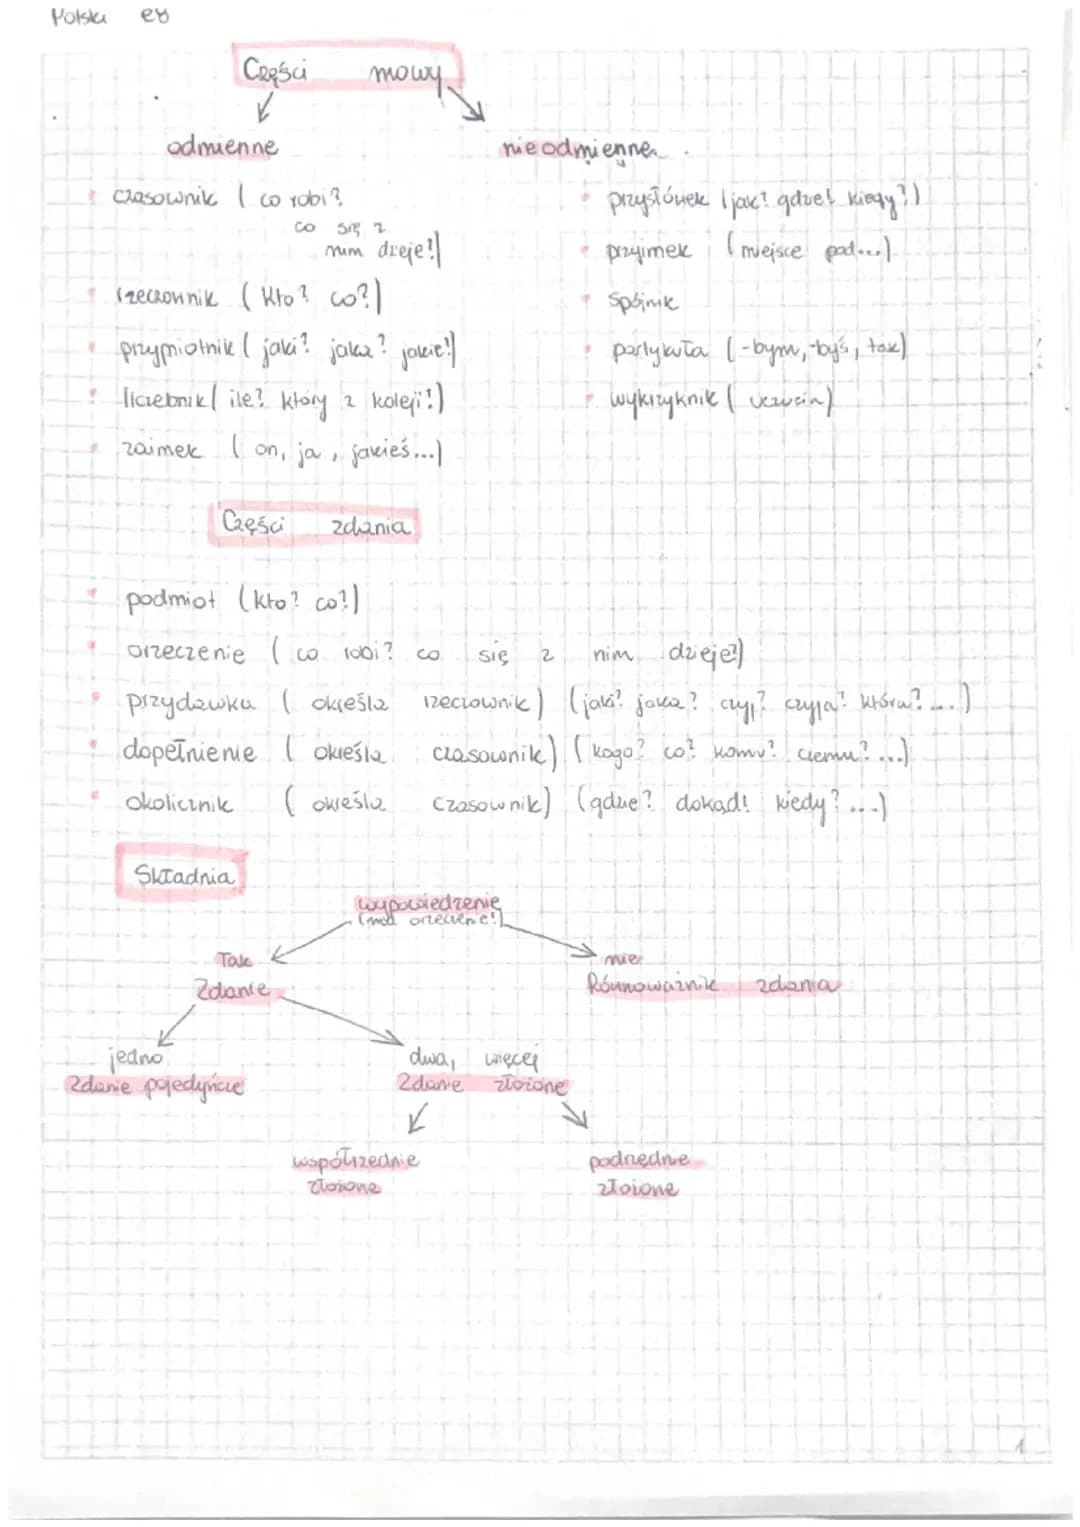 Polski e8
Części mowy
odmienne
nieodmienne
czasownik ( co robi?
co się z
nim dzieje?)
rzeczownik ( kto? co?)
przymiotnik ( jaki? jaka? jakie?)
liczebnik ( ile? który z kolej?)
zaimek ( on, ja, jakieś...)
przysłówek (jak? gdzie? kiedy?)
przyimek ( miejsce pod...)
spójnik
partykuła ( -bym, -byś, tak)
wykrzyknik ( uczucia)
Części zdania
podmiot (kto? co?)
orzeczenie ( co robi? co się z nim dzieje?)
przydawka ( określa rzeczownik) (jaki? jaka? czyj? czyja? która?...)
dopełnienie ( określa czasownik) ( kogo? co? komu? czemu?...)
okolicznik ( określa czasownik) (gdzie? dokąd? kiedy?...)
Składnia
wypowiedzenie
(ma orzeczenie?)
Tak
Zdanie
nie
Równoważnik zdania
jedno
Zdanie pojedyńcze
dwa, więcej
Zdanie złożone
współrzędnie
złożone
podrzędnie
złożone
1